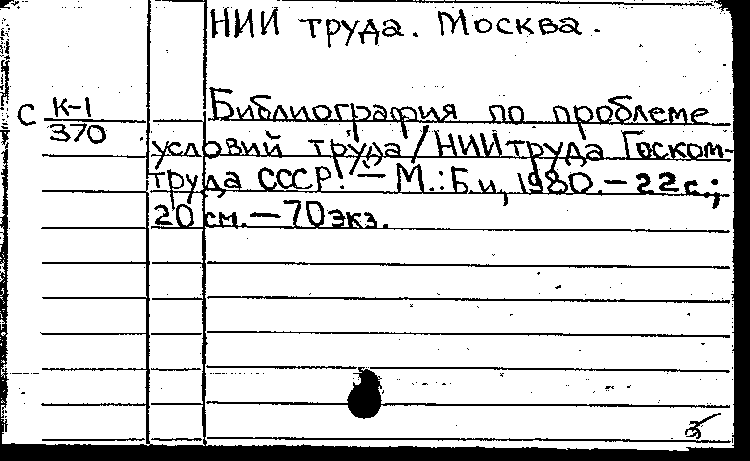 НИИ труда. Москва.
С К-1
370
Библиография по проблеме
условий труда/НИИ труда Госком-
труда СССР. — М.: Б.и, 1980. — 22 с.;
20 см. — 70 экз.